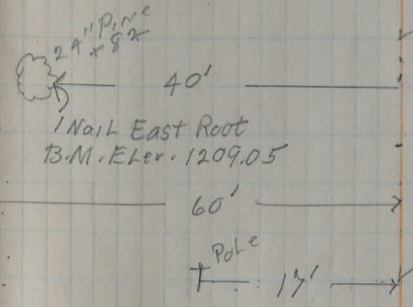 24" Pine
40'
1 Nail East Root
B.M. Elev. 1209.05
60'
Pole
17'